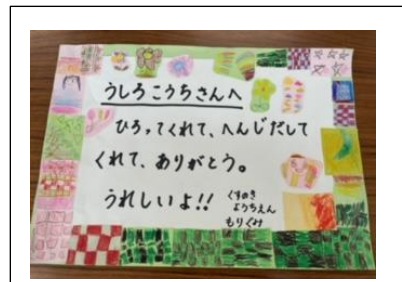 うしろこうちさんへ
ひろってくれて、へんじだして
くれて、ありがとう。
うれしいよ!!
くすのき
ようちえん
もりぐみ